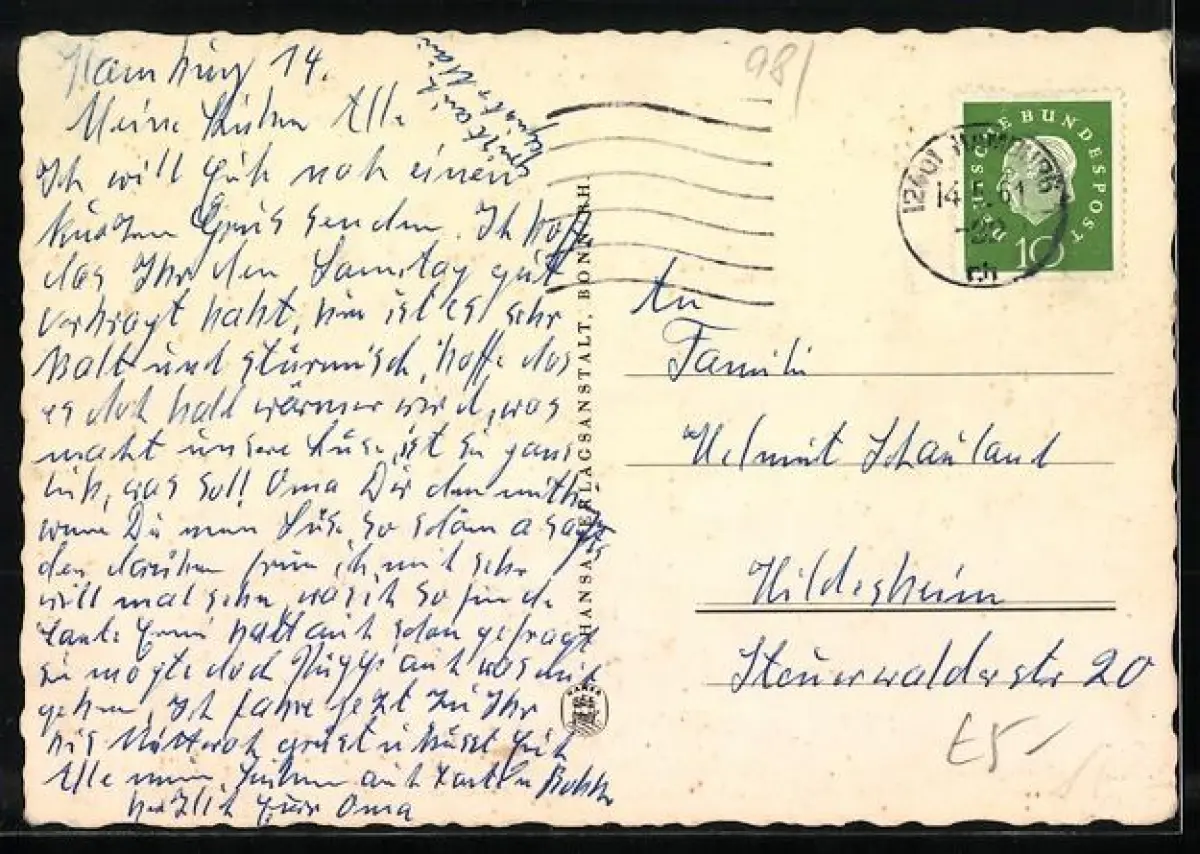 Hamburg 14.
Meine Lieben Alle
Ich will Euch noch einen
kurzen Gruss senden. Ich hoffe
das Ihr den Samstag gut
verbragt habt, hir ist es sehr
kalt und stürmisch, hoffe das
es doch bald wärmer wird, was
macht unsere Suse, ist sie ganz
lieb, was soll Oma Dir den mitbr
wenn Du man Suse, so schön a sagst
den darüber freu ich mich sehr
will mal sehn, was ich so finde
Tante Erni hatt auch schon gefragt
sie mögte doch auch was mit
geben. Ich fahre jetzt zu Ihr
bis Mittwoch grüst u küsst Euch
Alle meine Lieben auch
herzlich Eure Oma
grüst auch
98/
DEUTSCHE BUNDESPOST
10
HAMBURG
14.5.61
rh
HANSA VERLAGSANSTALT, BONN/RH.
An
Famili
Helmut Schauland
Hildesheim
Steuerwalderstr 20
E5-